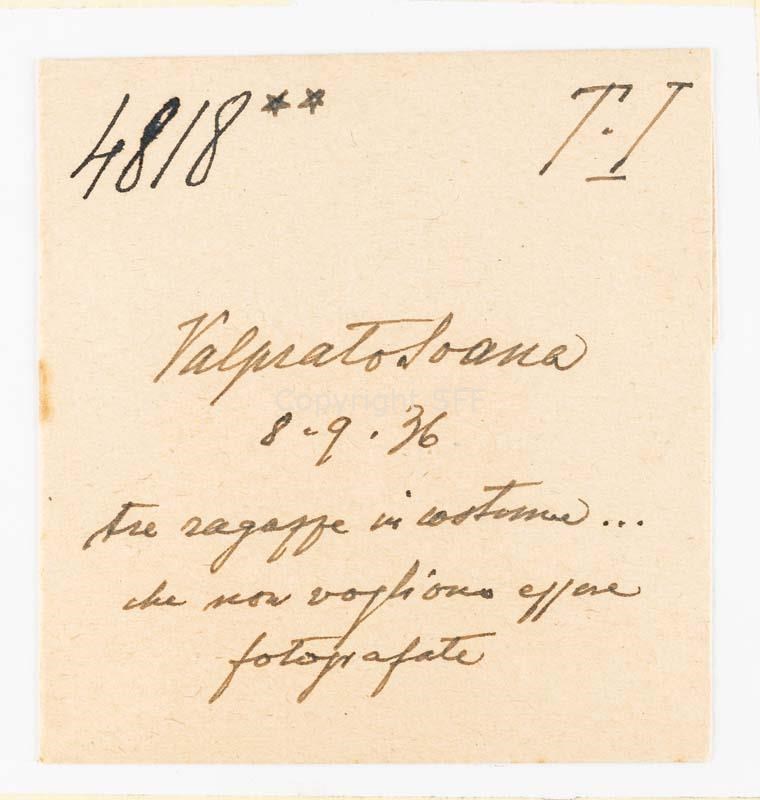 4818** T.I
Valprato Soana
Copyright SFF
8-9.36
tre ragazze in costume...
che non vogliono essere
fotografate